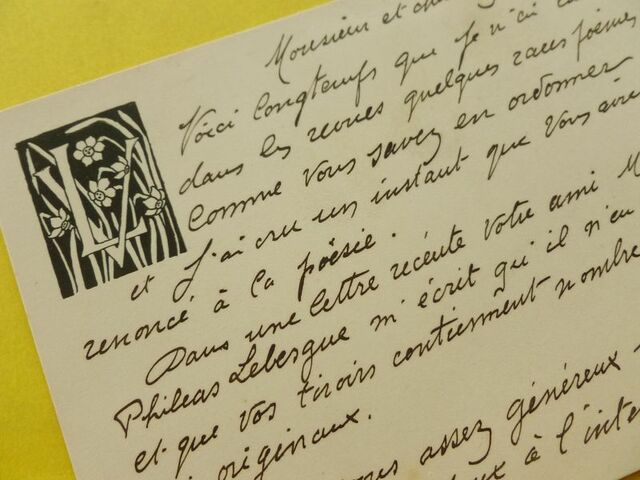 LV
Monsieur et cher
Voici longtemps que je n'ai
dans les revues quelques rares poèmes
comme vous savez en ordonner
et j'ai cru un instant que vous avie
renoncé à la poësie.
Dans une lettre récente votre ami M
Phileas Lebesgue m'écrit qu'il n'en
et que vos tiroirs contiennent nombre
originaux.
assez généreux
à l'inte